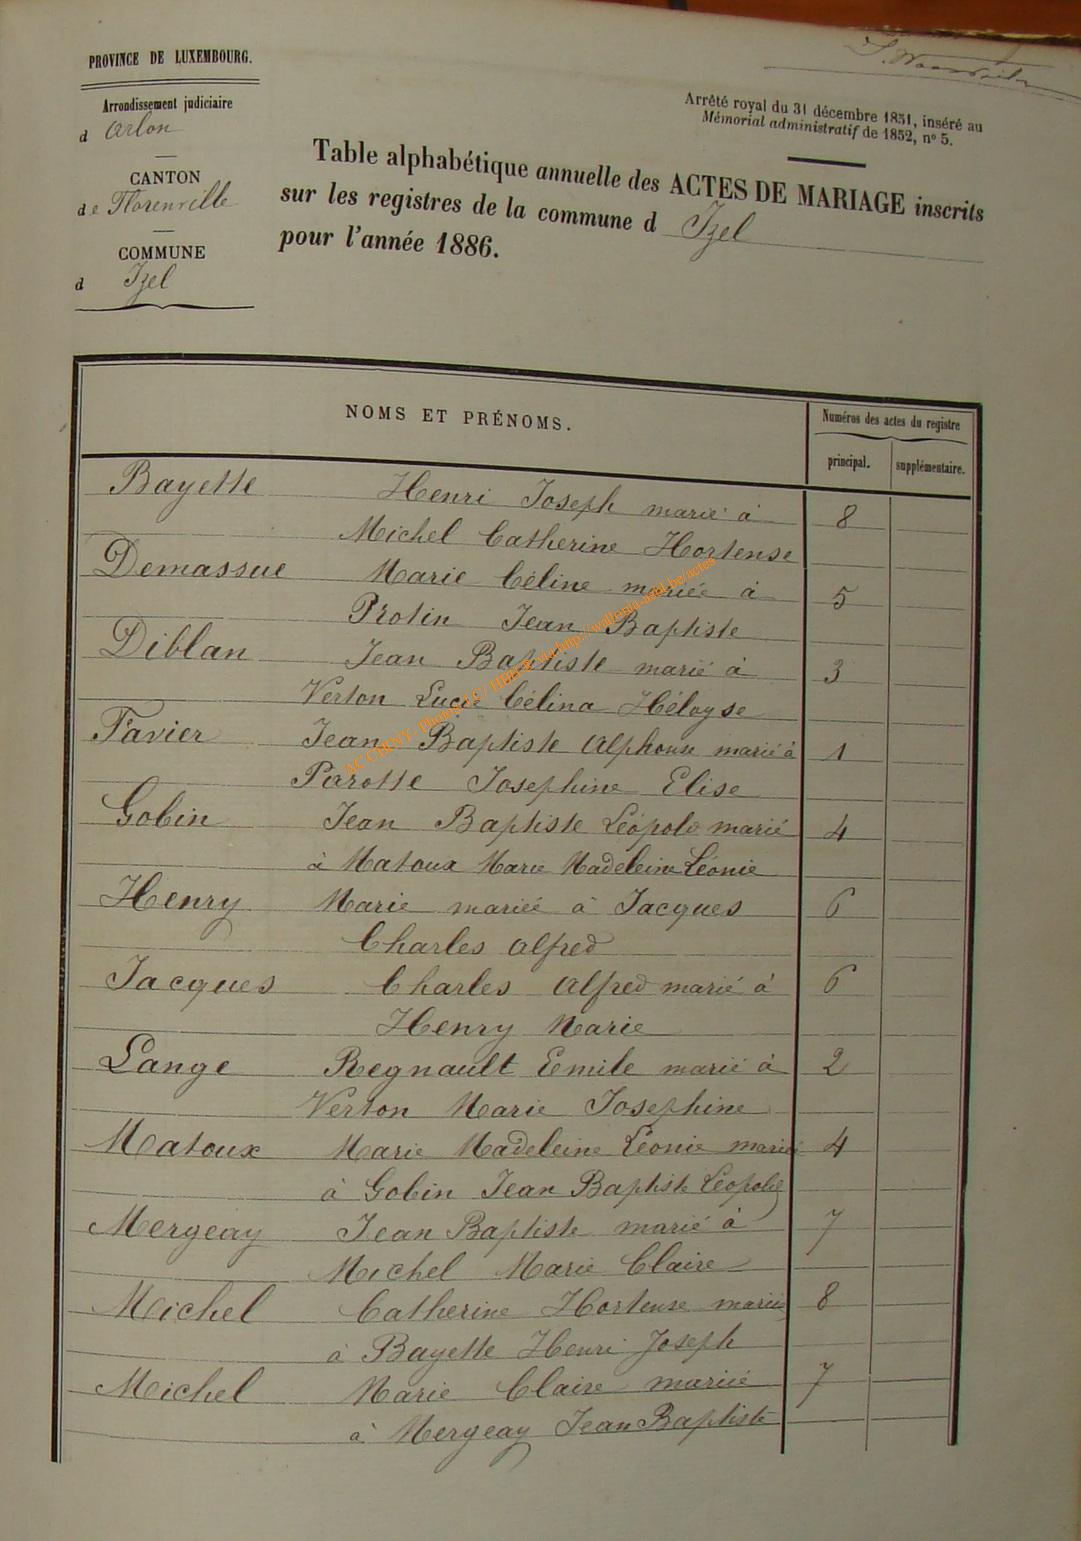 PROVINCE DE LUXEMBOURG.
Arrondissement judiciaire
d Arlon
CANTON
de Florenville
COMMUNE
d Izel
Arrêté royal du 31 décembre 1851, inséré au
Mémorial administratif de 1852, nº 5.
Table alphabétique annuelle des ACTES DE MARIAGE inscrits
sur les registres de la commune d Izel
pour l'année 1886.
NOMS ET PRÉNOMS.
Numéros des actes du registre
principal. supplémentaire.
Bayette Henri Joseph marié à 8
Michel Catherine Hortense
Demassue Marie Céline mariée à 5
Protin Jean Baptiste
Diblan Jean Baptiste marié à 3
Verton Lucie Célina Héloyse
Favier Jean Baptiste Alphonse marié à 1
Pirotte Josephine Elise
Gobin Jean Baptiste Léopold marié 4
à Matoux Marie Madeleine Léonie
Henry Marie mariée à Jacques 6
Charles Alfred
Jacques Charles Alfred marié à 6
Henry Marie
Lange Regnault Emile marié à 2
Verton Marie Josephine
Matoux Marie Madeleine Léonie mariée 4
à Gobin Jean Baptiste Léopold
Mergeay Jean Baptiste marié à 7
Michel Marie Claire
Michel Catherine Hortense mariée 8
à Bayette Henri Joseph
Michel Marie Claire mariée 7
à Mergeay Jean Baptiste